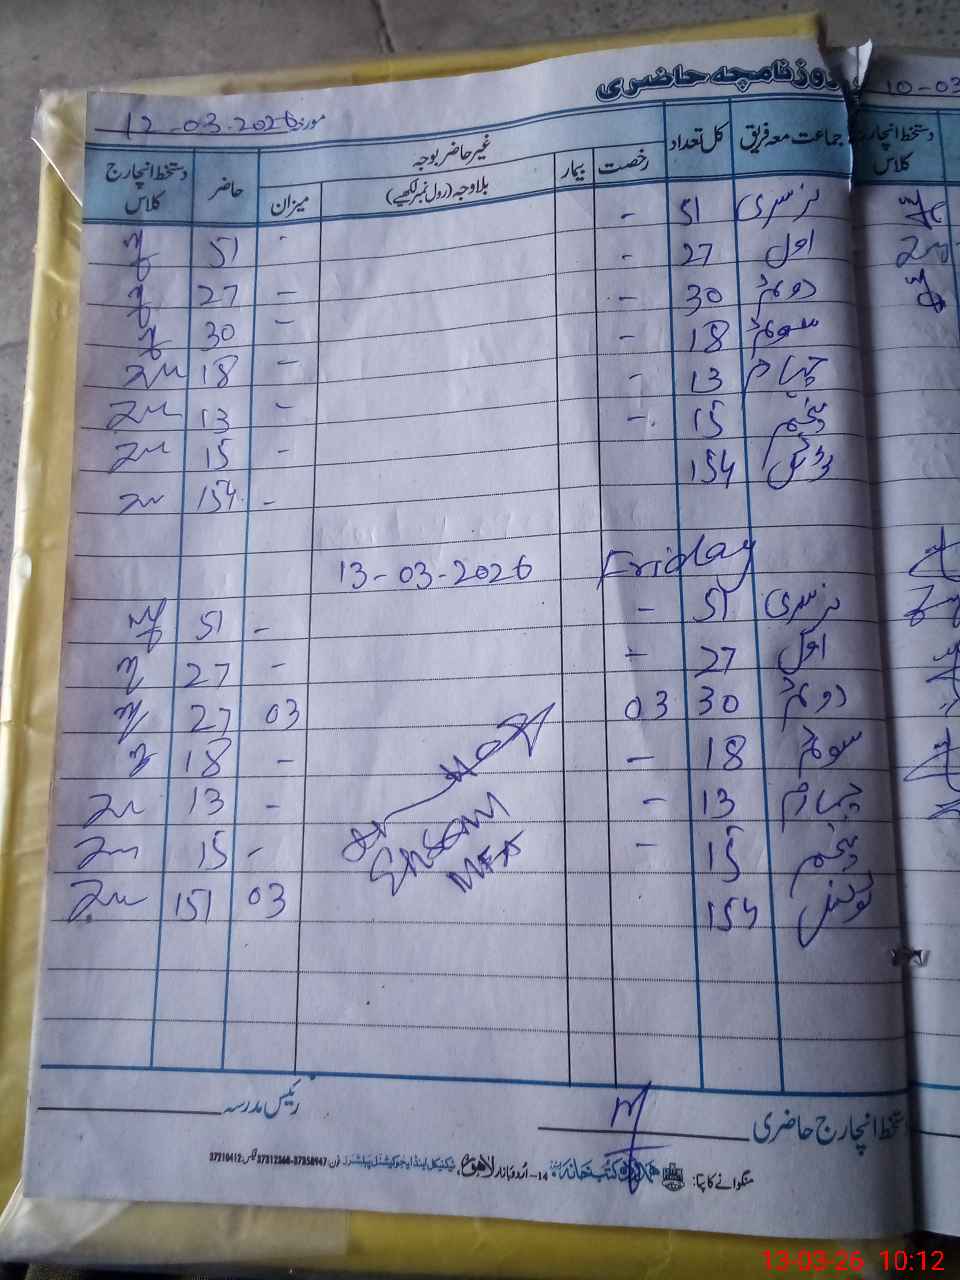 روزنامچہ حاضری
مورخہ 12-03-2026
جماعت معہ فریق کل تعداد غیر حاضر بوجہ حاضر دستخط انچارج کلاس
رخصت بیمار بلاوجہ (رول نمبر لکھیے) میزان
نرسری 51 - - 51
اول 27 - - 27
دوئم 30 - - 30
سوئم 18 - - 18
چہارم 13 - - 13
پنجم 15 - - 15
ٹوٹل 154 - 154
Friday 13-03-2026
نرسری 51 - - 51
اول 27 - - 27
دوئم 30 03 03 27
سوئم 18 - - 18
چہارم 13 - - 13
پنجم 15 - - 15
ٹوٹل 154 03 151
Ehsan
MEA
دستخط انچارج حاضری رئیس مدرسہ
منگوانے کا پتا: ہمدرد کتب خانہ 14-اردو بازار لاہور، ٹیکنیکل اینڈ ایجوکیشنل پبلشرز فون 37358947-37312368 فیکس: 37210412
10-03
دستخط انچارج
کلاس
13-03-26 10:12